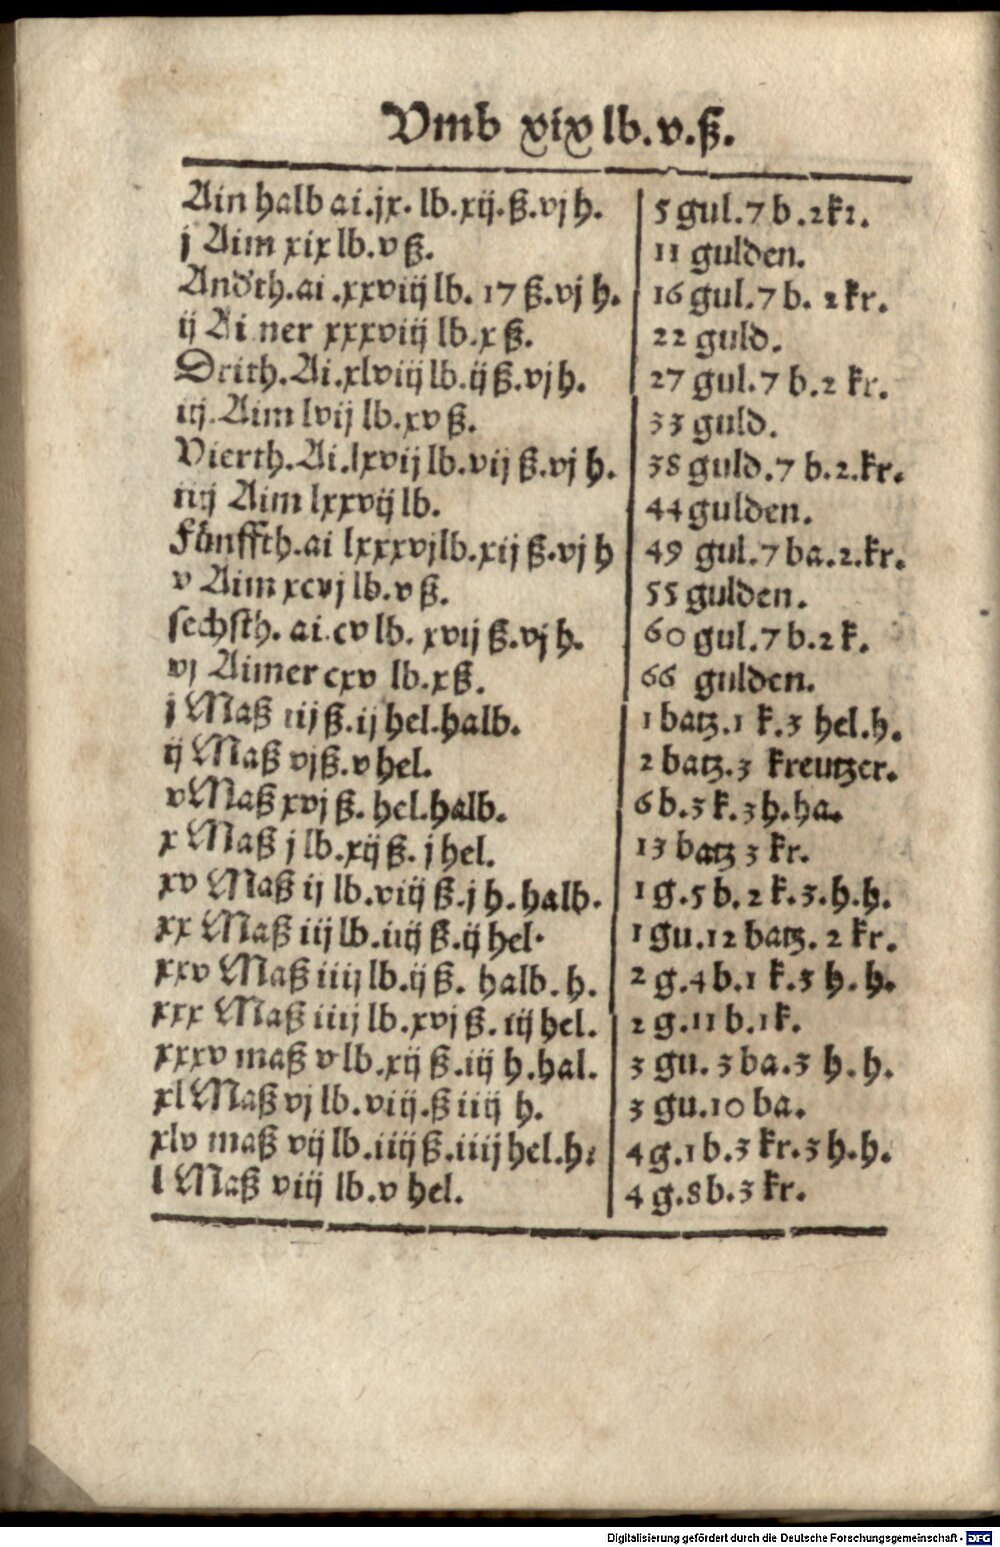 Vmb xix lb.v.ß.
Ain halb ai.jx.lb.xij.ß.vj h. 5 gul.7 b.2kr.
j Aim xix lb.v ß. 11 gulden.
Andth.ai.xxviij lb. 17 ß.vj h. 16 gul.7 b. 2 kr.
ij Ai ner xxxviij lb.x ß. 22 guld.
Drith.Ai.xlviij lb.ij ß.vj h. 27 gul.7 b.2 kr.
iij.Aim lvij lb.xv ß. 33 guld.
Vierth.Ai.lxvij lb.vij ß.vj h. 38 guld.7 b.2.kr.
iiij Aim lxxvij lb. 44 gulden.
Fünffth.ai lxxxvj lb.xij ß.vj h 49 gul.7 ba.2.kr.
v Aim xcvj lb.v ß. 55 gulden.
sechsth. ai.cv lb. xvij ß.vj h. 60 gul.7 b.2 k.
vj Aimer cxv lb.x ß. 66 gulden.
j Maß iij ß.ij hel.halb. 1 batz.1 k.3 hel.h.
ij Maß vj ß.v hel. 2 batz.3 kreutzer.
v Maß xvj ß. hel.halb. 6 b.3 k.3 h.ha.
x Maß j lb.xij ß. j hel. 13 batz 3 kr.
xv Maß ij lb.viij ß.j h.halb. 1 g.5 b.2 k.3.h.h.
xx Maß iij lb.iiij ß.ij hel. 1 gu.12 batz. 2 kr.
xxv Maß iiij lb.ij ß. halb.h. 2 g.4 b.1 k.3 h.h.
xxx Maß iiij lb.xvj ß. iij hel. 2 g.11 b.1 k.
xxxv maß v lb.xij ß.iij h.hal. 3 gu. 3 ba.3 h.h.
xl Maß vj lb.viij.ß iiij h. 3 gu.10 ba.
xlv maß vij lb.iiij ß.iiij hel.h: 4 g.1 b.3 kr.3 h.h.
l Maß viij lb.v hel. 4 g.8 b.3 kr.
Digitalisierung gefördert durch die Deutsche Forschungsgemeinschaft - DFG